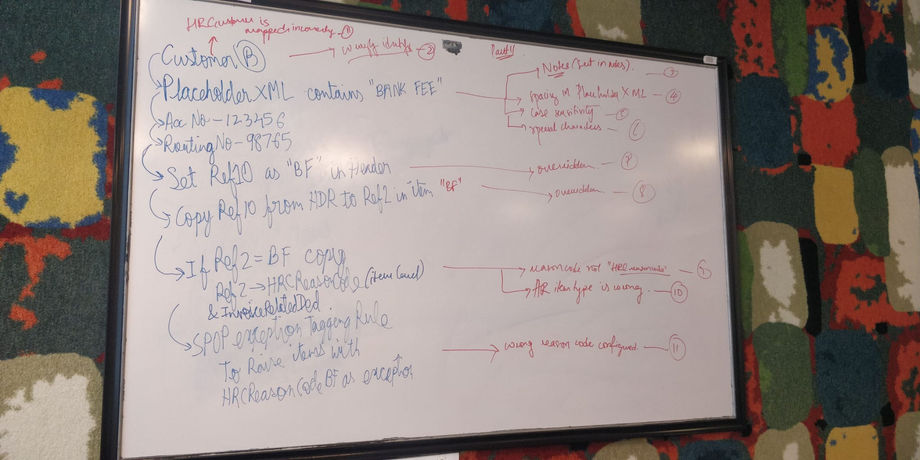 HRCustomer is
mapped incorrectly - 1
Customer B
identify - 2
Party
Notes (text in notes). - 3
Placeholder XML contains "BANK FEE"
spacing in Placeholder XML - 4
case sensitivity - 5
special characters - 6
Acc No - 123456
Routing No - 98765
Set Ref10 as "BF" in Header
overridden - 7
Copy Ref10 from HDR to Ref2 in item "BF"
overridden - 8
If Ref2 = BF copy
Ref2 → HRCReasonCode (item level)
& InvoiceRelatedDed
reasoncode not "HRCreasoncode" - 9
AR item type is wrong. - 10
SPOP exception Tagging Rule
To Raise items with
HRCReasonCode BF as exception
wrong reason code configured. - 11